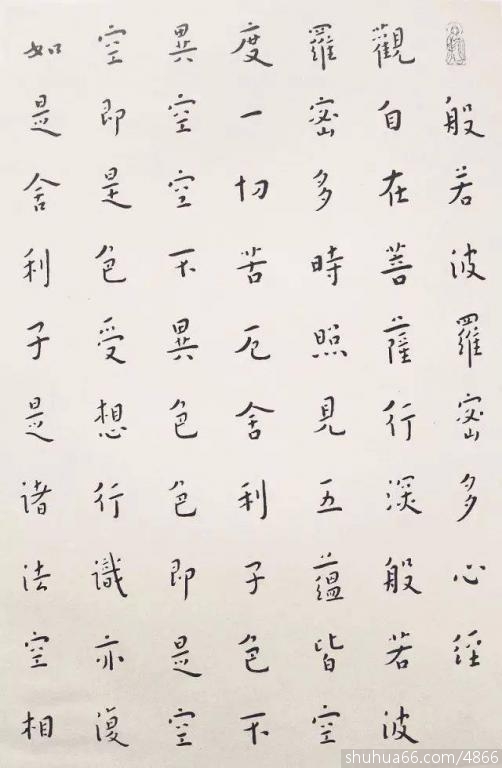 般若波羅密多心經
觀自在菩薩行深般若波
羅密多時照見五蘊皆空
度一切苦厄舍利子色不
異空空不異色色即是空
空即是色受想行識亦復
如是舍利子是諸法空相
shuhua66.com/4866